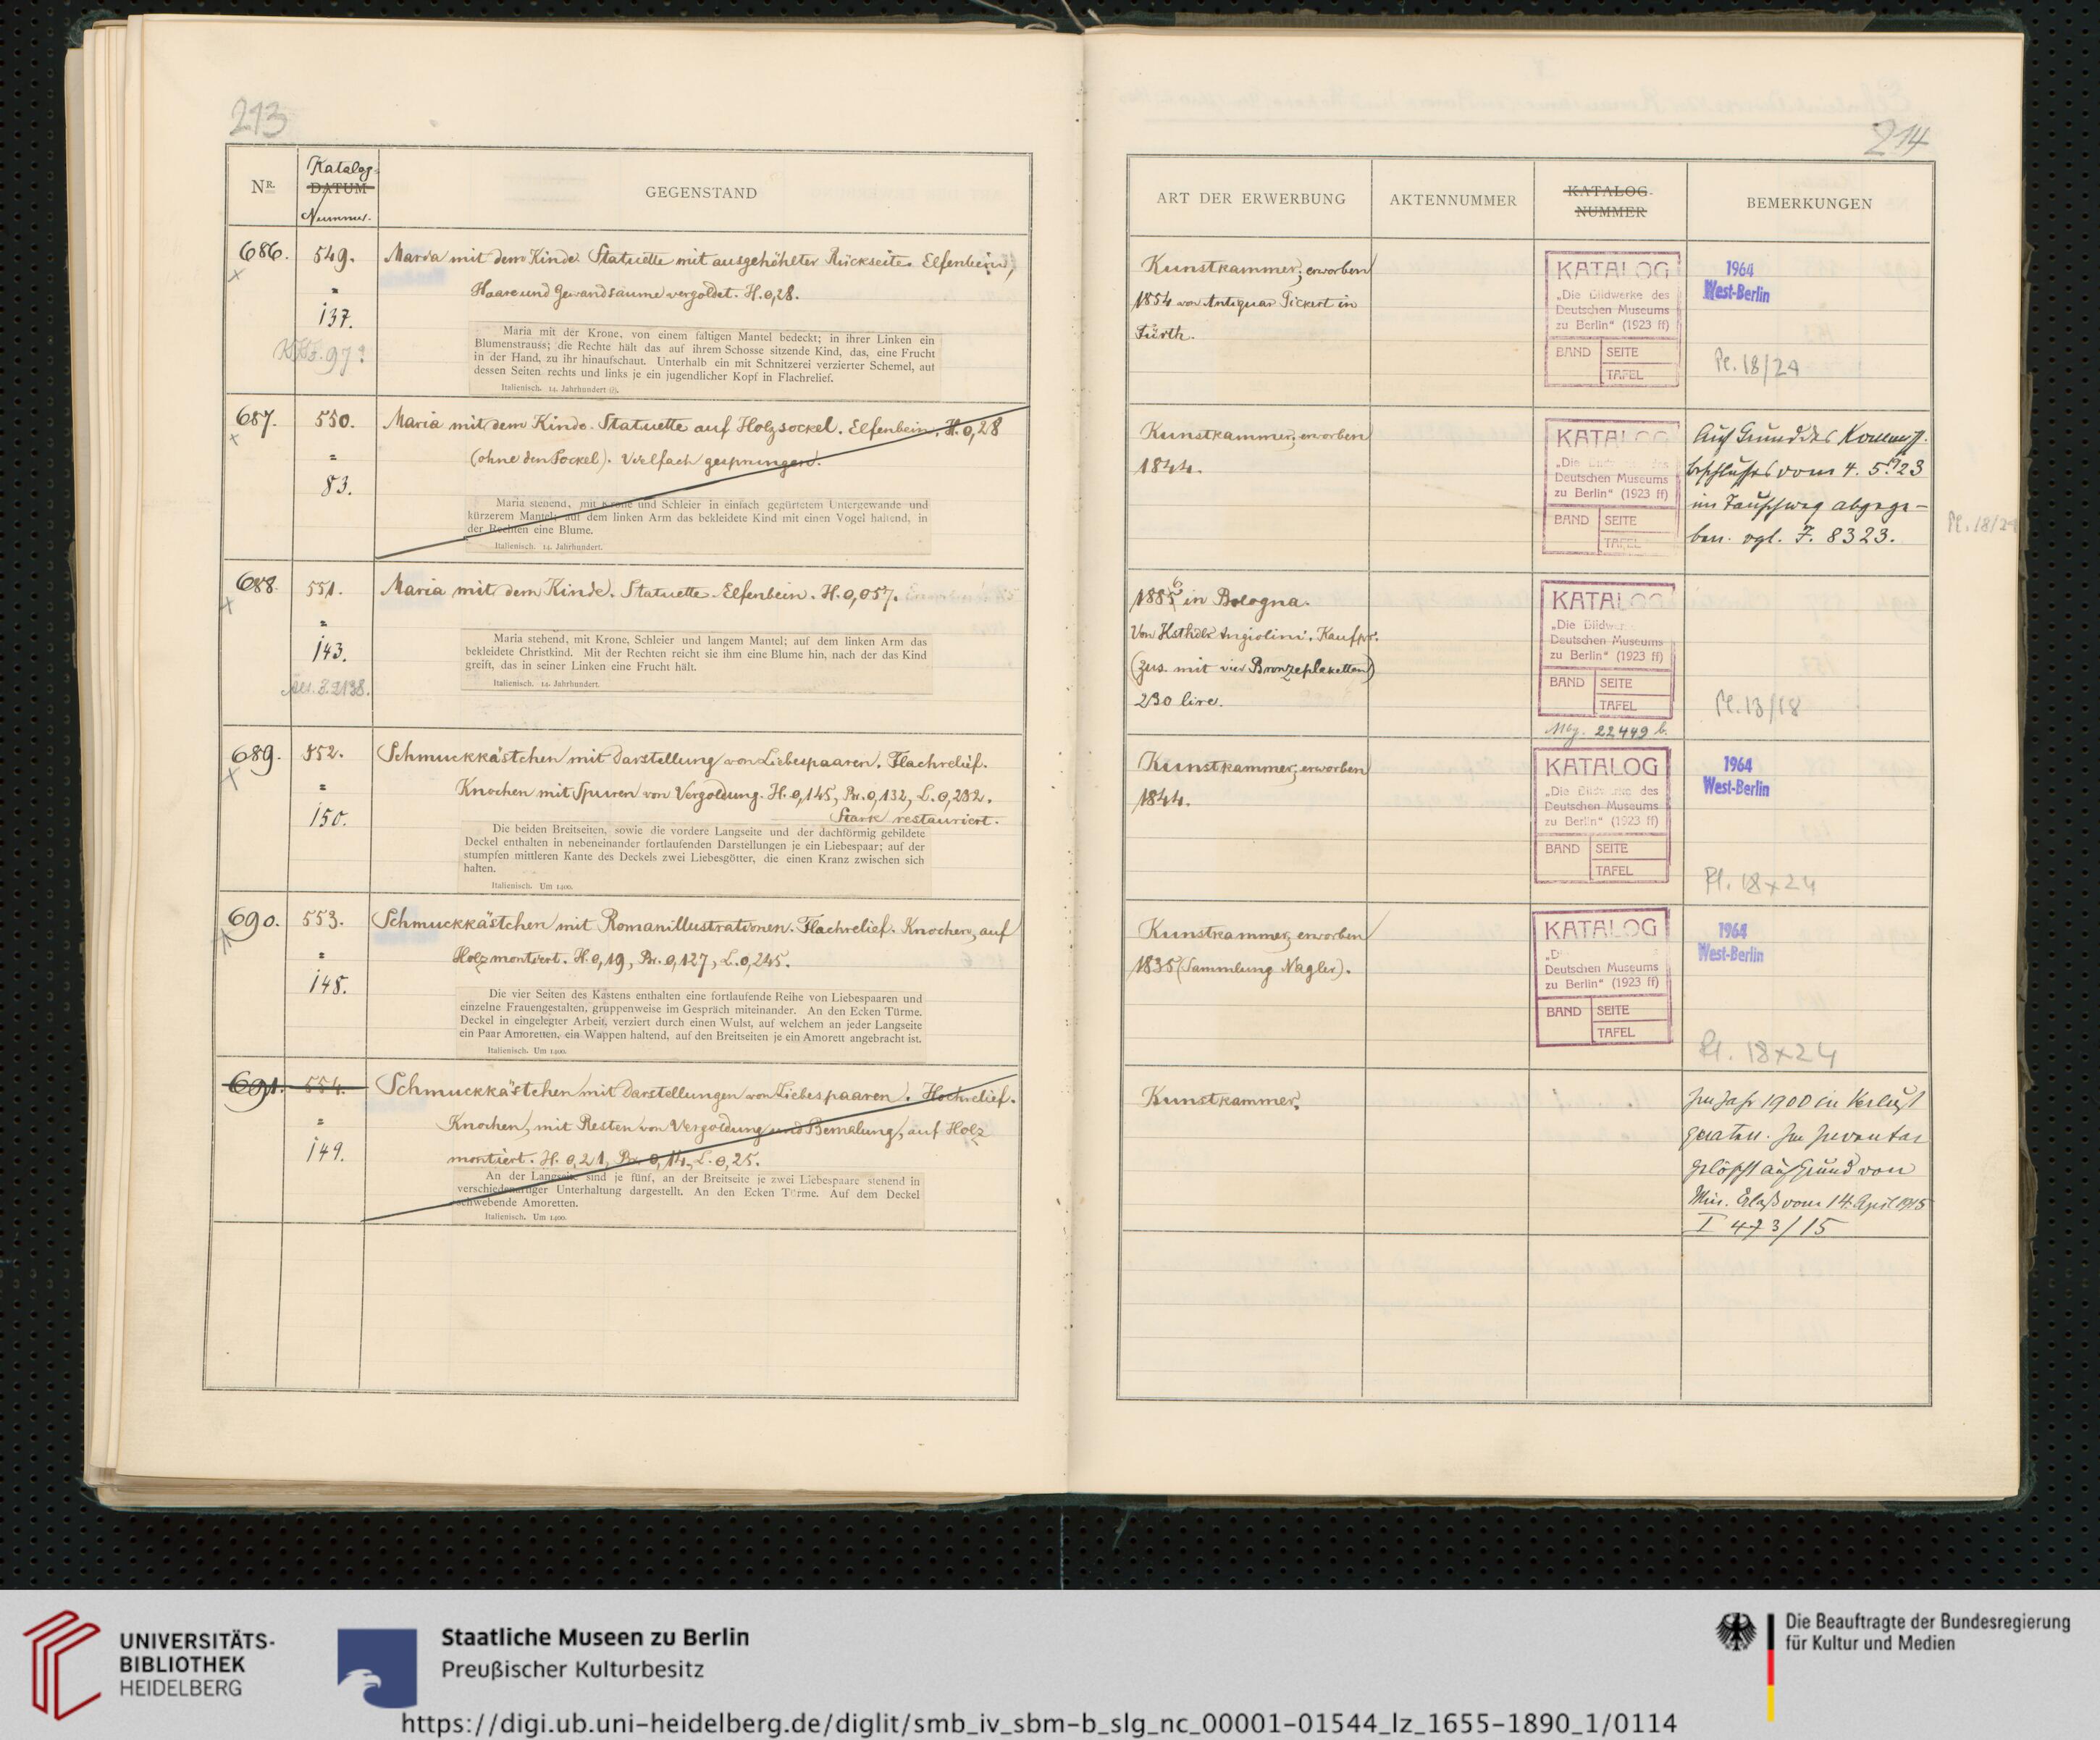 213
NR.
Katalog-
DATUM
Nummer.
GEGENSTAND
686.
549.
"
137.
Maria mit dem Kinde. Statuette mit ausgehöhlter Rückseite. Elfenbein,
Haare und Gewandsäume vergoldet. H. 0,28.
Maria mit der Krone, von einem faltigen Mantel bedeckt; in ihrer Linken ein
Blumenstrauss; die Rechte hält das auf ihrem Schosse sitzende Kind, das, eine Frucht
in der Hand, zu ihr hinaufschaut. Unterhalb ein mit Schnitzerei verzierter Schemel, auf
dessen Seiten rechts und links je ein jugendlicher Kopf in Flachrelief.
Italienisch. 14. Jahrhundert (?).
687.
550.
"
83.
Maria mit dem Kinde. Statuette auf Holzsockel. Elfenbein. H. 0,28
(ohne den Sockel). Vielfach gesprungen.
Maria stehend, mit Krone und Schleier in einfach gegürtetem Untergewande und
kürzerem Mantel; auf dem linken Arm das bekleidete Kind mit einen Vogel haltend, in
der Rechten eine Blume.
Italienisch. 14. Jahrhundert.
688.
551.
"
143.
Maria mit dem Kinde. Statuette. Elfenbein. H. 0,057.
Maria stehend, mit Krone, Schleier und langem Mantel; auf dem linken Arm das
bekleidete Christkind. Mit der Rechten reicht sie ihm eine Blume hin, nach der das Kind
greift, das in seiner Linken eine Frucht hält.
Italienisch. 14. Jahrhundert.
689.
552.
"
150.
Schmuckkästchen mit Darstellung von Liebespaaren. Flachrelief.
Knochen mit Spuren von Vergoldung. H. 0,145, Br. 0,132, L. 0,232.
Stark restauriert.
Die beiden Breitseiten, sowie die vordere Langseite und der dachförmig gebildete
Deckel enthalten in nebeneinander fortlaufenden Darstellungen je ein Liebespaar; auf der
stumpfen mittleren Kante des Deckels zwei Liebesgötter, die einen Kranz zwischen sich
halten.
Italienisch. Um 1400.
690.
553.
"
148.
Schmuckkästchen mit Romanillustrationen. Flachrelief. Knochen, auf
Holz montiert. H. 0,19, Br. 0,127, L. 0,245.
Die vier Seiten des Kastens enthalten eine fortlaufende Reihe von Liebespaaren und
einzelne Frauengestalten, gruppenweise im Gespräch miteinander. An den Ecken Türme.
Deckel in eingelegter Arbeit, verziert durch einen Wulst, auf welchem an jeder Langseite
ein Paar Amoretten, ein Wappen haltend, auf den Breitseiten je ein Amorett angebracht ist.
Italienisch. Um 1400.
691.
554.
"
149.
Schmuckkästchen mit Darstellungen von Liebespaaren. Hochrelief.
Knochen, mit Resten von Vergoldung und Bemalung, auf Holz
montiert. H. 0,21, Br. 0,14, L. 0,25.
An der Langseite sind je fünf, an der Breitseite je zwei Liebespaare stehend in
verschiedenartiger Unterhaltung dargestellt. An den Ecken Türme. Auf dem Deckel
schwebende Amoretten.
Italienisch. Um 1400.
214
ART DER ERWERBUNG
AKTENNUMMER
KATALOG-
NUMMER
BEMERKUNGEN
Kunstkammer, erworben
1854 von Antiquar Pickert in
Fürth.
KATALOG
„Die Bildwerke des
Deutschen Museums
zu Berlin“ (1923 ff)
BAND
SEITE
TAFEL
1964
West-Berlin
Pl. 18/24
Kunstkammer, erworben
1844.
KATALOG
„Die
Deutschen Museums
zu Berlin“ (1923 ff)
BAND
SEITE
TAFEL
Auf Grund des Komm.
beschlusses vom 4. 5. 23
im Tauschweg abgege-
ben. vgl. J. 8323.
Pl. 18/24
1886 in Bologna.
Von Angiolini. Kaufpr.
(zus. mit vier Bronzeplaketten)
230 lire.
KATALOG
„Die Bildwer
Deutschen Museums
zu Berlin“ (1923 ff)
BAND
SEITE
TAFEL
22449 b.
Pl. 13/18
Kunstkammer, erworben
1844.
KATALOG
„Die Bildwerke des
Deutschen Museums
zu Berlin“ (1923 ff)
BAND
SEITE
TAFEL
1964
West-Berlin
Pl. 18x24
Kunstkammer, erworben
1835 (Sammlung Nagler).
KATALOG
„D
Deutschen Museums
zu Berlin“ (1923 ff)
BAND
SEITE
TAFEL
1964
West-Berlin
Pl. 18x24
Kunstkammer.
Im Jahr 1900 in Verlust
geraten. Im Inventar
gelöscht auf Grund von
Min. Erlaß vom 14. April 1915
I 473/15
UNIVERSITÄTS-
BIBLIOTHEK
HEIDELBERG
Staatliche Museen zu Berlin
Preußischer Kulturbesitz
Die Beauftragte der Bundesregierung
für Kultur und Medien
https://digi.ub.uni-heidelberg.de/diglit/smb_iv_sbm-b_slg_nc_00001-01544_lz_1655-1890_1/0114